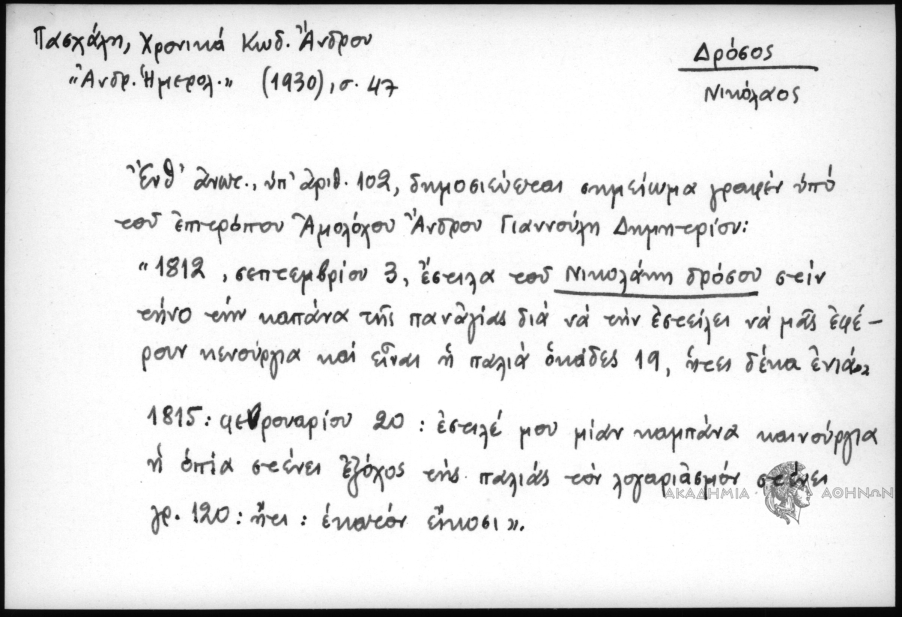 Πασχάλη, Χρονικά Κωδ. Ἄνδρου
"Ἀνδρ. Ἡμερολ." (1930), σ. 47
Δρόσος
Νικόλαος
Ἔνθ' ἄνωτ., ὑπ' ἀριθ. 102, δημοσιεύεται σημείωμα γραφέν ὑπό
τοῦ ἐπιτρόπου Ἀμολόχου Ἄνδρου Γιαννούλη Δημητρίου:
"1812, σεπτεμβρίου 3, ἔστιλα τοῦ Νικολάκη δρόσου στίν
τήνο τήν καπάνα τῆς παναγίας διά νά τήν ἐστείλει νά μᾶς ἐφέ-
ρουν κενούργια καί εἶναι ἡ παλιά ὀκάδες 19, ἤτει δέκα ἐνιά"
1815: φεβροναρίου 20: ἐστιλέ μου μίαν καμπάνα καινούργια
ἡ ὁπία στένει ἐξόχος τῆς παλιάς τόν λογαριασμόν στένει
γρ. 120: ἤτι: ἑκατόν εἴκοσι».
ΑΚΑΔΗΜΙΑ ΑΘΗΝΩΝ